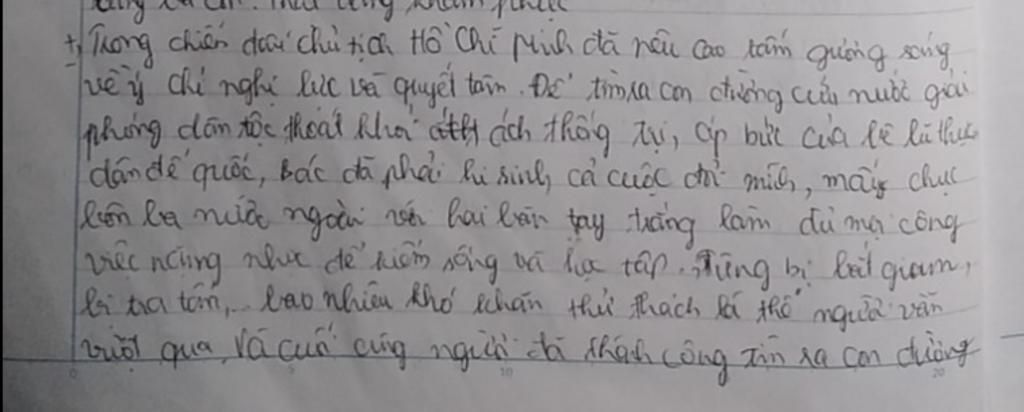 +, Trong chiến đấu chủ tịch Hồ Chí Minh đã nêu cao tấm gương sáng
về ý chí nghị lực và quyết tâm. Để tìm ra con đường cứu nước giải
phóng dân tộc thoát khỏi ách thống trị, áp bức của lũ thực
dân đế quốc, Bác đã phải hi sinh cả cuộc đời mình, mấy chục
bôn ba nước ngoài với hai bàn tay trắng làm đủ mọi công
việc nặng nhọc để kiếm sống và học tập. Từng bị bắt giam,
bị tra tấn,.. bao nhiêu khó khăn thử thách là thế người vẫn
vượt qua, và cuối cùng người đã thành công tìm ra con đường